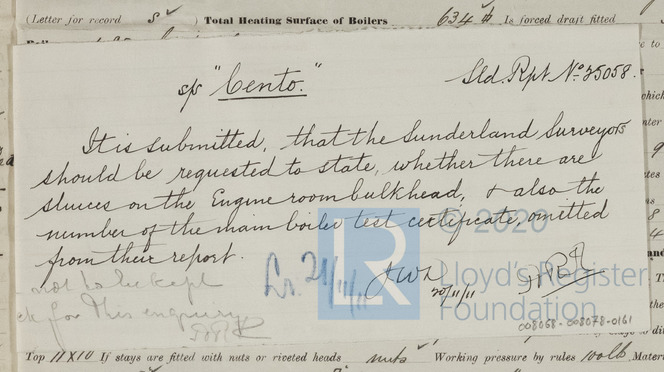 (Letter for record s ) Total Heating Surface of Boilers 634 Is forced draft fitted
s/s "Cento." Sld. Rpt No. 25058.
It is submitted, that the Sunderland Surveyors
should be requested to state, whether there are
sluices on the Engine room bulkhead, & also the
number of the main boiler test certificate, omitted
from their report.
not to be kept
for this enquiry
Lr. 21/11/11 JWD 20/11/11
© 2020
LR Lloyd's Register
Foundation
008068-008078-0161
Top 11X10 If stays are fitted with nuts or riveted heads nuts Working pressure by rules Mater